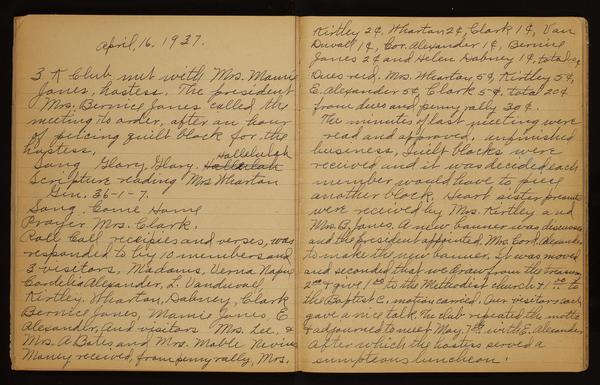 April, 16. 1937.
3 K Club met with Mrs. Mamie
Jones, hostess. The president
Mrs. Bernice Jones called the
meeting to order, after an hour
of piecing quilt block for the
hostess,
Song Glory, Glory, Hallelulah
Scripture reading Mrs Wharton
Gin. 36-1-7.
Song. Come Home
Prayer Mrs. Clark.
Roll Call, receipies and verses, was
responded to by 10 members and
3 visitors, Madams, Verna
Cordelia Alexander, L. Vanduvall,
Kirtley, Wharton, Dabney, Clark
Bernice Jones, Mamie Jones, E
Alexander, and visitors Mrs. Lee, &
Mrs. A Bates and Mrs. Mable Nevins
Money received, from penny rally, Mrs.
Kirtley 2¢, Wharton 2¢, Clark 1¢, Van
Duvall 1¢, Cor. Alexander 1¢, Bernice
Jones 2¢ and Helen Dabney 1¢, total 10¢
Dues recd. Mrs. Wharton, 5¢, Kirtley 5¢,
E. Alexander 5¢, Clark 5¢. total 20¢
from dues and penny rally 30¢.
The minutes of last meeting were
read and approved, unfinished
business, Quilt blocks were
received and it was decided each
member would have to piece
another block, Heart sister presents
were received by Mrs. Kirtley and
Mrs. B. Jones. A new banner was discussed
and the president appointed, Mrs. Cord. Alexander
to make the new banner. It was moved
and seconded that we draw from the treasury
2.00 & give 1.00 to the Methodist church & 1.00 to
the Baptist C., motion carried. Our visitors each
gave a nice talk. The club repeated the motto
& adjourned to meet May, 7th with E. Alexander
After which the hostess served a
sumptuous luncheon.